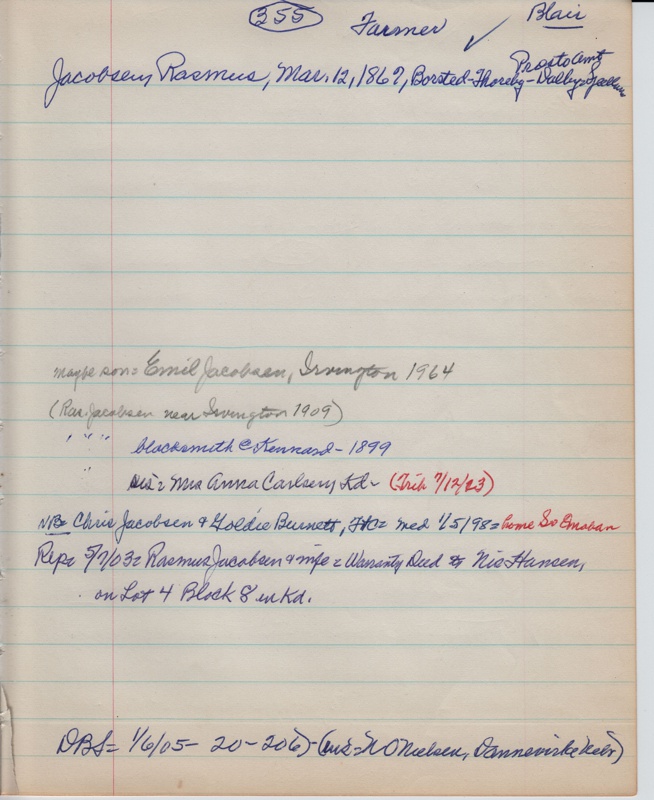 355 Farmer Blair
Jacobsen, Rasmus, Mar. 12, 1867, Borsted-Thoreby-Dalby-
Prasto Amt
maybe son = Emil Jacobsen, Irvington 1964
(Ras. Jacobsen near Irvington 1909)
" " " blacksmith @ Kennard - 1899
" sis = Mrs Anna Carlsen, Kd - (Trib 7/12/23)
NB = Chris Jacobsen & Goldie Burnett, = med 1/5/98 = home So Omaha
Rep = 5/7/03 = Rasmus Jacobsen & wife = Warranty Deed to Nis Hansen,
on Lot 4 Block 8 in Kd.
DBS = 1/6/05 - 20-206) - (wit = N O Nielsen, Dannevirke Nebr)